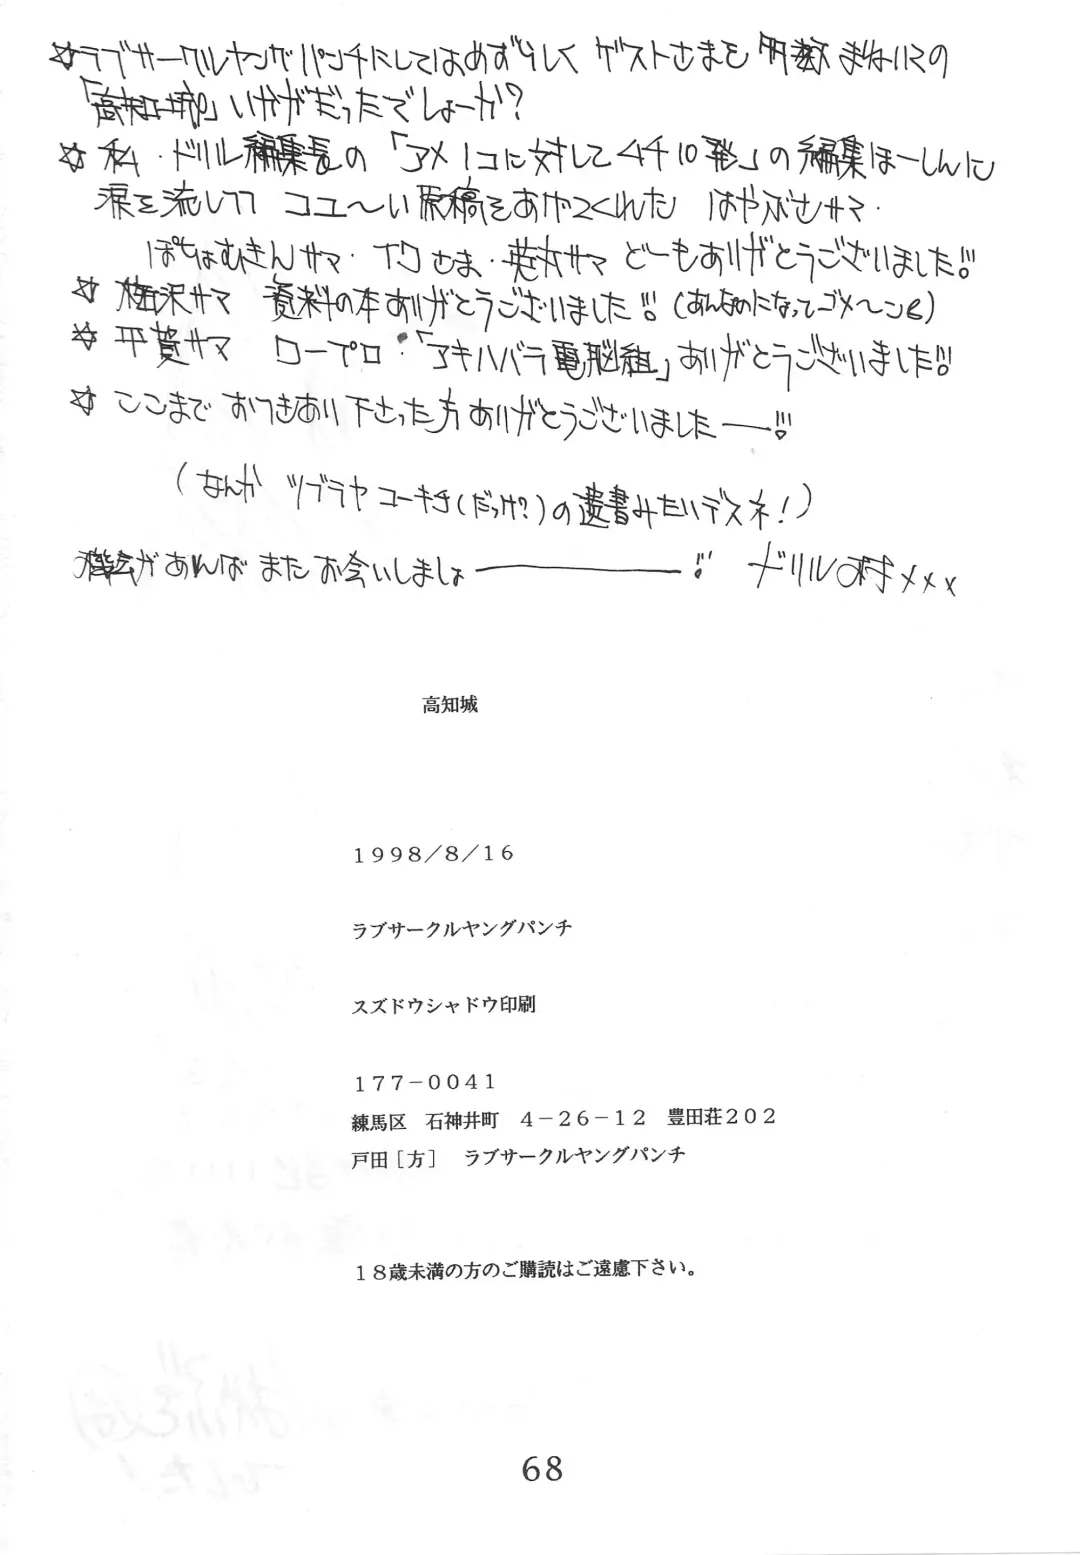 ☆ラブサークルヤングパンチにしてはめずらしく ゲストさまを 多数 まねいての
「高知城」いかがだったでしょーか?
☆ 私・ドリル編集長の 「アメ1コに対してムチ10発」の編集ほーしんに
涙を流しつつ コユ〜い原稿をあげてくれた はやぶさサマ・
ぽちょむきんサマ・ さま・ サマ どーもありがとうございました!!
☆ 梅沢サマ 資料の本ありがとうございました!! (あんなのになってゴメ〜ン)
☆ 平賀サマ ロープロ・「アキハバラ電脳組」ありがとうございました!!
☆ ここまで おつきあい下さった方ありがとうございました――!!!
(なんか ツブラヤコーキチ(だっけ?)の遺書みたいデスネ!)
機会があればまたお会いしましょ――――!! ドリル村×××
高知城
1998/8/16
ラブサークルヤングパンチ
スズドウシャドウ印刷
177-0041
練馬区 石神井町 4-26-12 豊田荘202
戸田[方] ラブサークルヤングパンチ
18歳未満の方のご購読はご遠慮下さい。
68